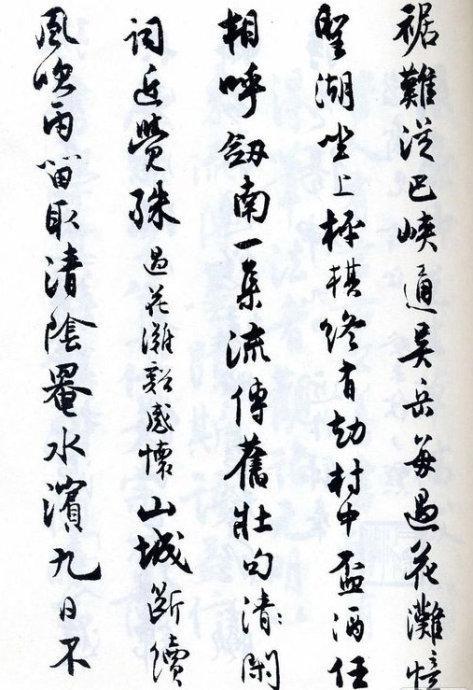 裾難從巴峽通吳岳每過花灘憶
聖湖坐上枰棋終有劫村中盃酒任
相呼劔南一集流傳舊壯句清閒
詞覺殊過花灘谿感懷山城斷續
風吹雨留取清陰罨水濱九日不